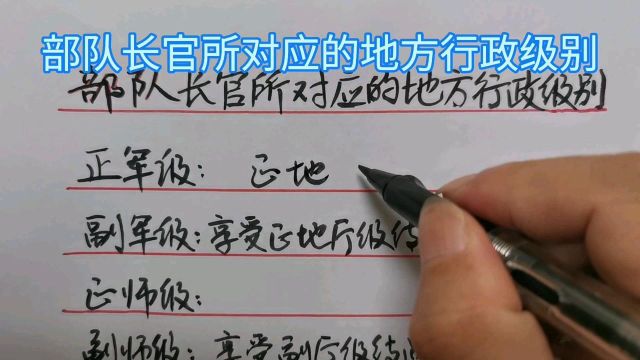 部队长官所对应的地方行政级别
部队长官所对应的地方行政级别
正军级: 正地
副军级:享受正地厅级待
正师级:
副师级:享受副厅级待